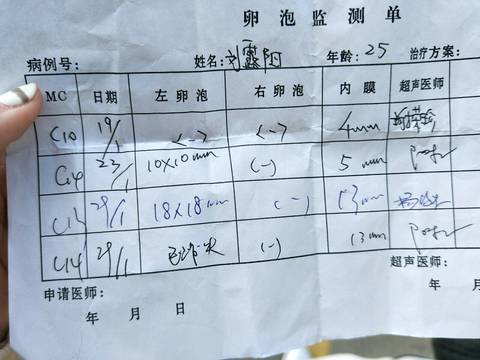 卵泡监测单
病例号: 姓名: 刘露阳 年龄: 25 治疗方案:
MC 日期 左卵泡 右卵泡 内膜 超声医师
C10 19/1 <-> <-> 4mm
C14 23/1 10×10mm (-) 5mm
29/1 18×18mm (-) 13mm
C14 29/1 (-) 13mm
申请医师: 超声医师:
年 月 日 年 月